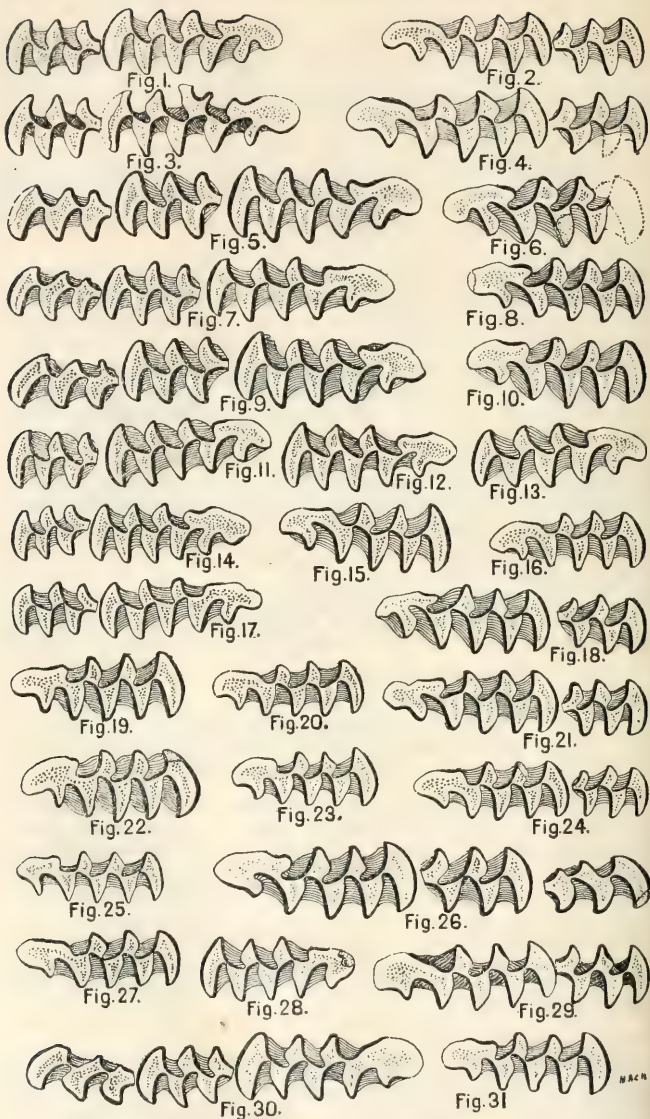 Fig.1.
Fig.2.
Fig.3.
Fig.4.
Fig.5.
Fig.6.
Fig.7.
Fig.8.
Fig.9.
Fig.10.
Fig.11.
Fig.12.
Fig.13.
Fig.14.
Fig.15.
Fig.16.
Fig.17.
Fig.18.
Fig.19.
Fig.20.
Fig.21.
Fig.22.
Fig.23.
Fig.24.
Fig.25.
Fig.26.
Fig.27.
Fig.28.
Fig.29.
Fig.30.
Fig.31